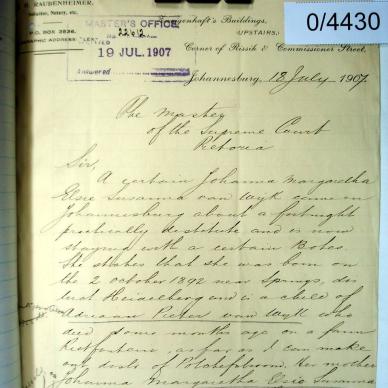 B. RAUBENHEIMER,
Solicitor, Notary, etc.
P.O. BOX 3836.
MASTER'S OFFICE
No 22612
19 JUL. 1907
Answered
Buildings,
(UPSTAIRS,)
Corner of Rissik & Commissioner Street,
0/4430
Johannesburg, 18 July 1907.
The Master
of the Supreme Court
Pretoria
Sir,
A certain Johanna Margaretha
Elsie Susanna van Wyk came in
Johannesburg about a fortnight
practically destitute and is now
staying with a certain Botes.
She states that she was born on
the 2 October 1892 near Springs, dis
trict Heidelberg and is a child of
Adriaan Pieter van Wyk who
died some months ago on a farm
Rietfontein, as far as I can make
out dist. of Potchefstroom. Her mother
Johanna Margaretha Elsie Susanna